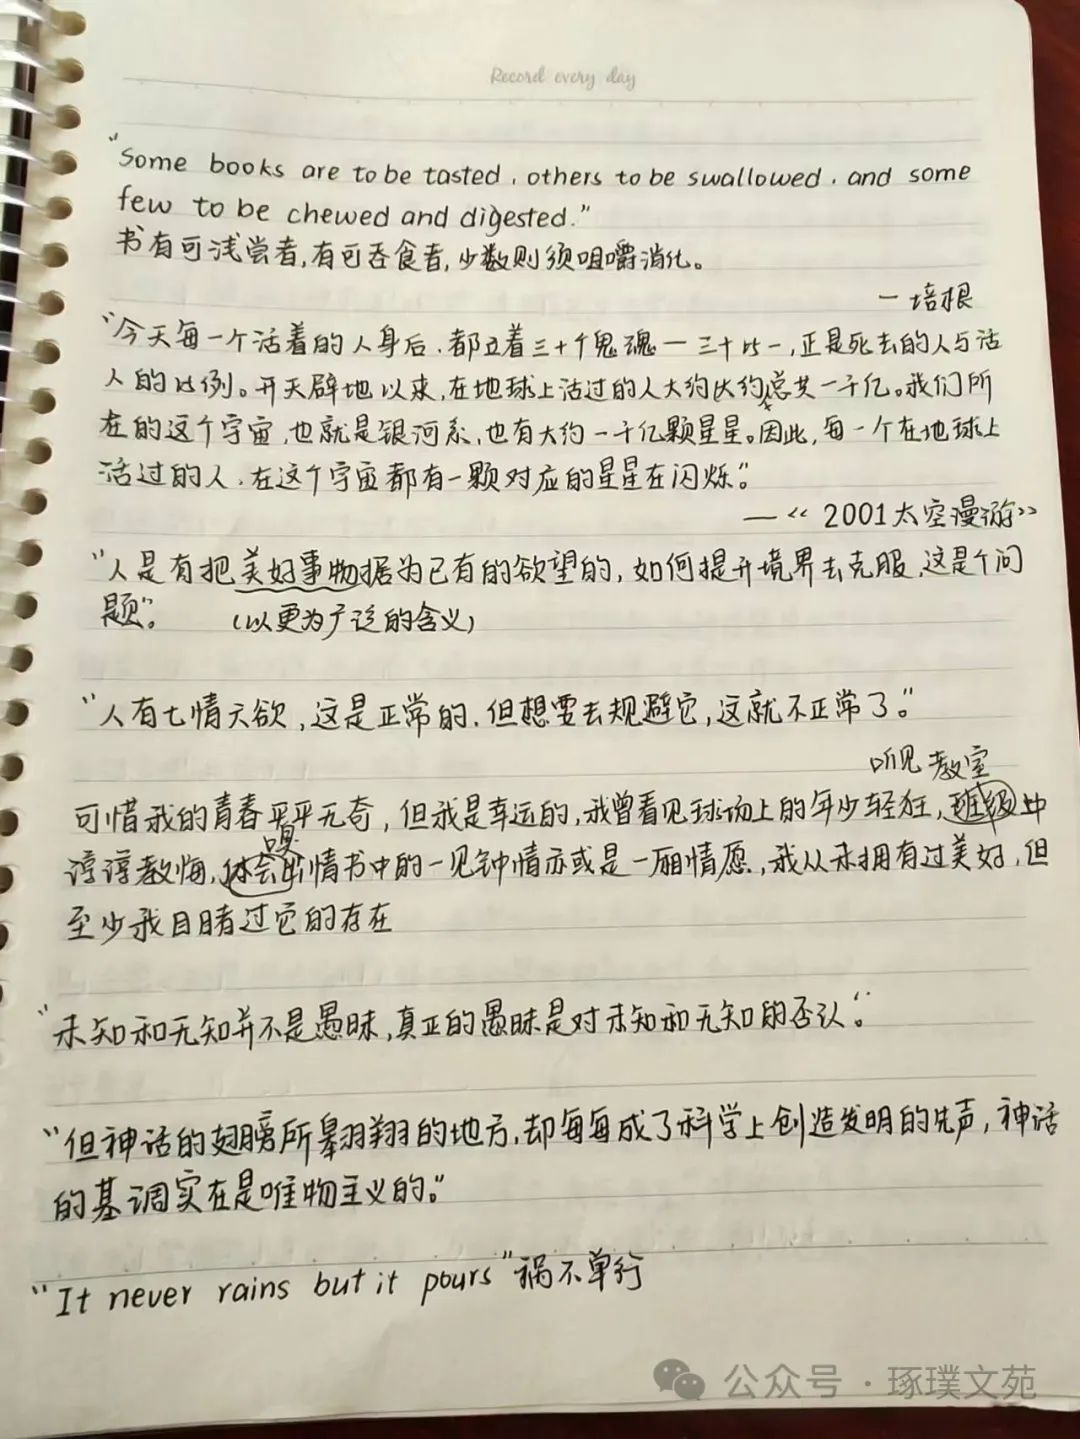 Record every day
"Some books are to be tasted, others to be swallowed, and some
few to be chewed and digested."
书有可浅尝者,有可吞食者,少数则须咀嚼消化。
一培根
"今天每一个活着的人身后,都立着三十个鬼魂一三十比一,正是死去的人与活
人的比例。开天辟地以来,在地球上活过的人大约总共一千亿。我们所
在的这个宇宙,也就是银河系,也有大约一千亿颗星星。因此,每一个在地球上
活过的人,在这个宇宙都有一颗对应的星星在闪烁。"
—《2001太空漫游》
"人是有把美好事物据为已有的欲望的,如何提升境界去克服,这是个问
题"。 (以更为广泛的含义)
"人有七情六欲,这是正常的,但想要去规避它,这就不正常了。"
听见 教室
可惜我的青春平平无奇,但我是幸运的,我曾看见球场上的年少轻狂,班级中
嗅
谆谆教诲,体会出情书中的一见钟情亦或是一厢情愿,我从未拥有过美好,但
至少我目睹过它的存在
"未知和无知并不是愚昧,真正的愚昧是对未知和无知的否认。"
"但神话的翅膀所翱翔的地方,却每每成了科学上创造发明的先声,神话
的基调实在是唯物主义的。"
"It never rains but it pours"祸不单行
公众号·琢璞文苑